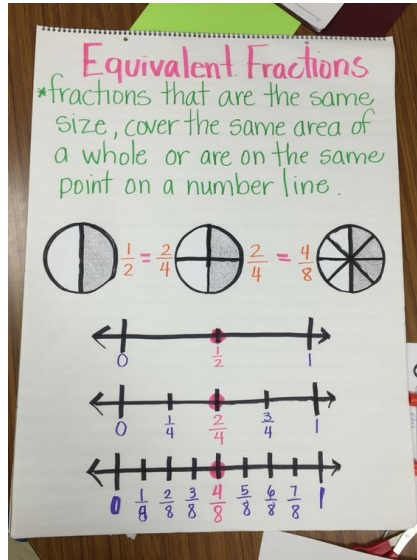 Equivalent Fractions
*fractions that are the same
size, cover the same area of
a whole or are on the same
point on a number line.
1/2 = 2/4 2/4 = 4/8
0 1/2 1
0 1/4 2/4 3/4 1
0 1/8 2/8 3/8 4/8 5/8 6/8 7/8 1